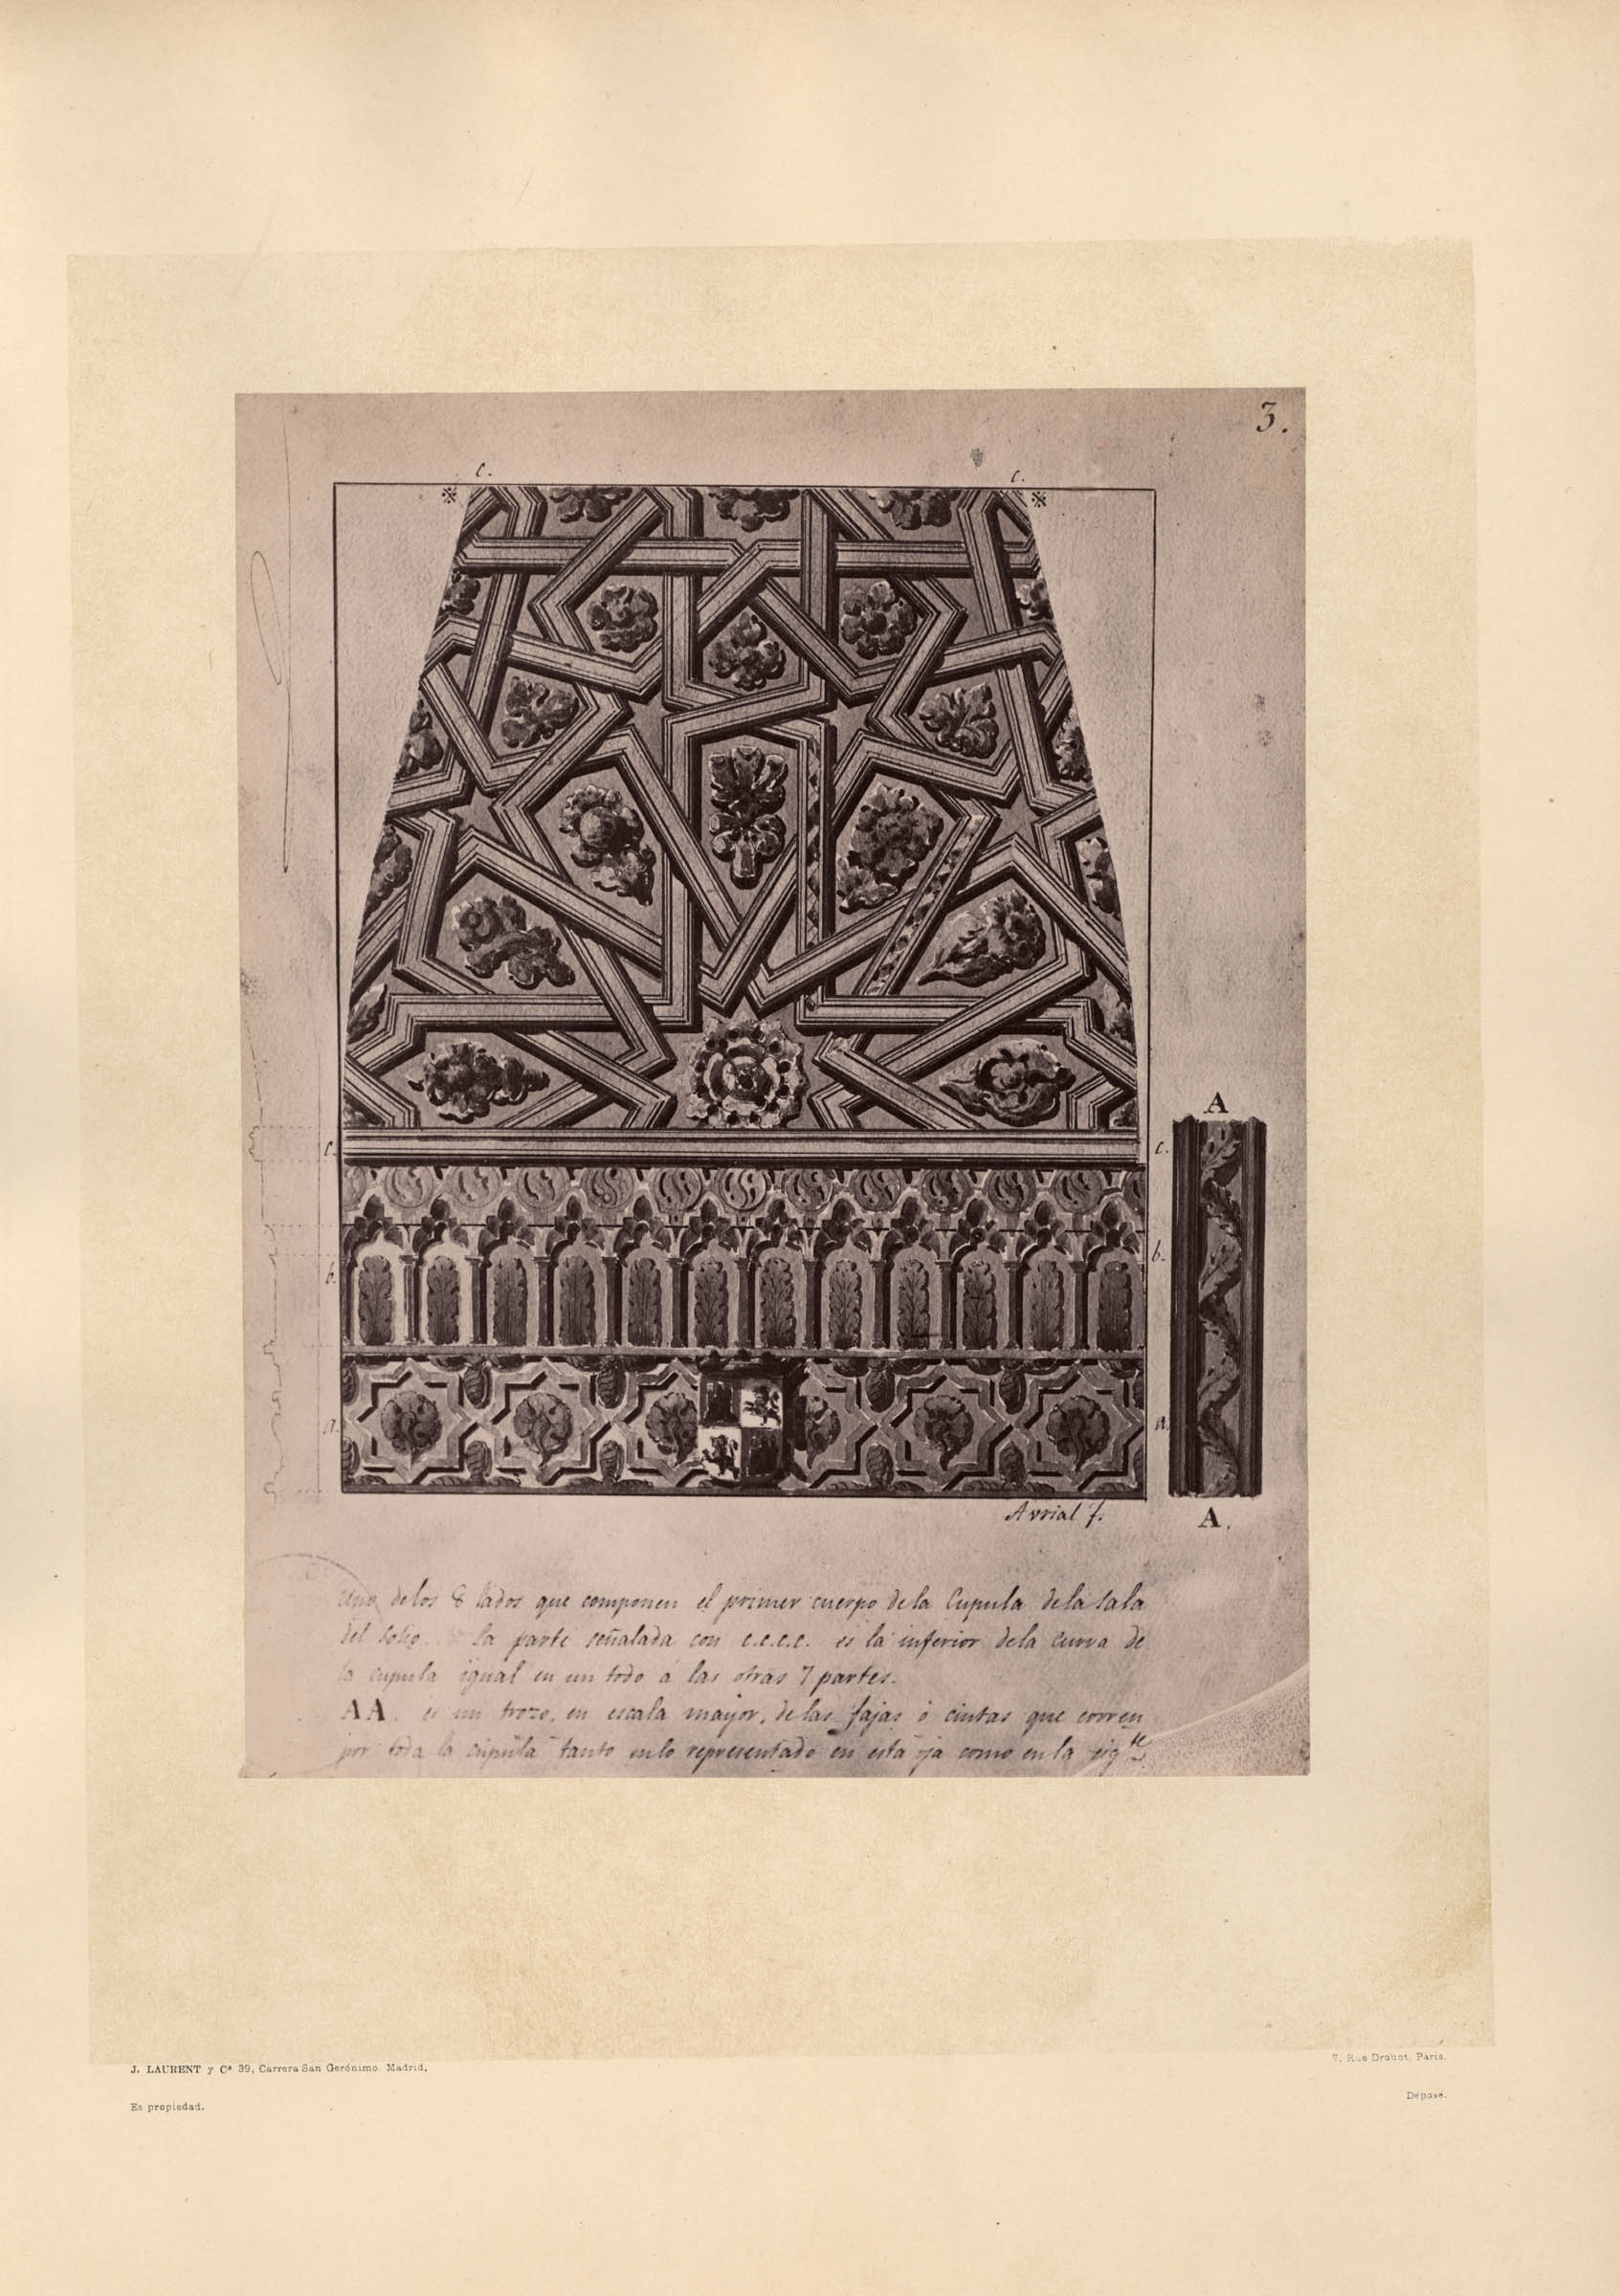 3.
c. c.
c. c.
b. b.
a. a.
A
A.
Avrial f.
Uno de los 8 lados que componen el primer cuerpo de la Cupula de la Sala
del Solio. La parte señalada con c.c.c.c. es la inferior de la curva de
la cupula igual en un todo á las otras 7 partes.
AA. es un trozo, en escala mayor, de las fajas ó cintas que corren
por toda la cúpula tanto en lo representado en esta oja como en la sigte
J. LAURENT y Cª 39, Carrera San Gerónimo. Madrid.
7, Rue Drouot, Paris.
Es propiedad.
Déposé.